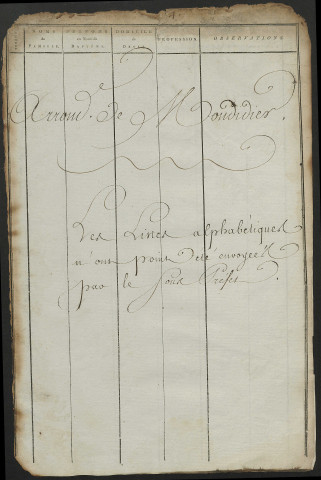 NOMS de FAMILLE. PRÉNOMS ou Noms de BAPTÊME. DOMICILE de DROIT. PROFESSION. OBSERVATIONS.
Arrond.t de Mondidier.
Les Listes alphabétiques
n'ont point été envoyées
par le Sous Préfet.